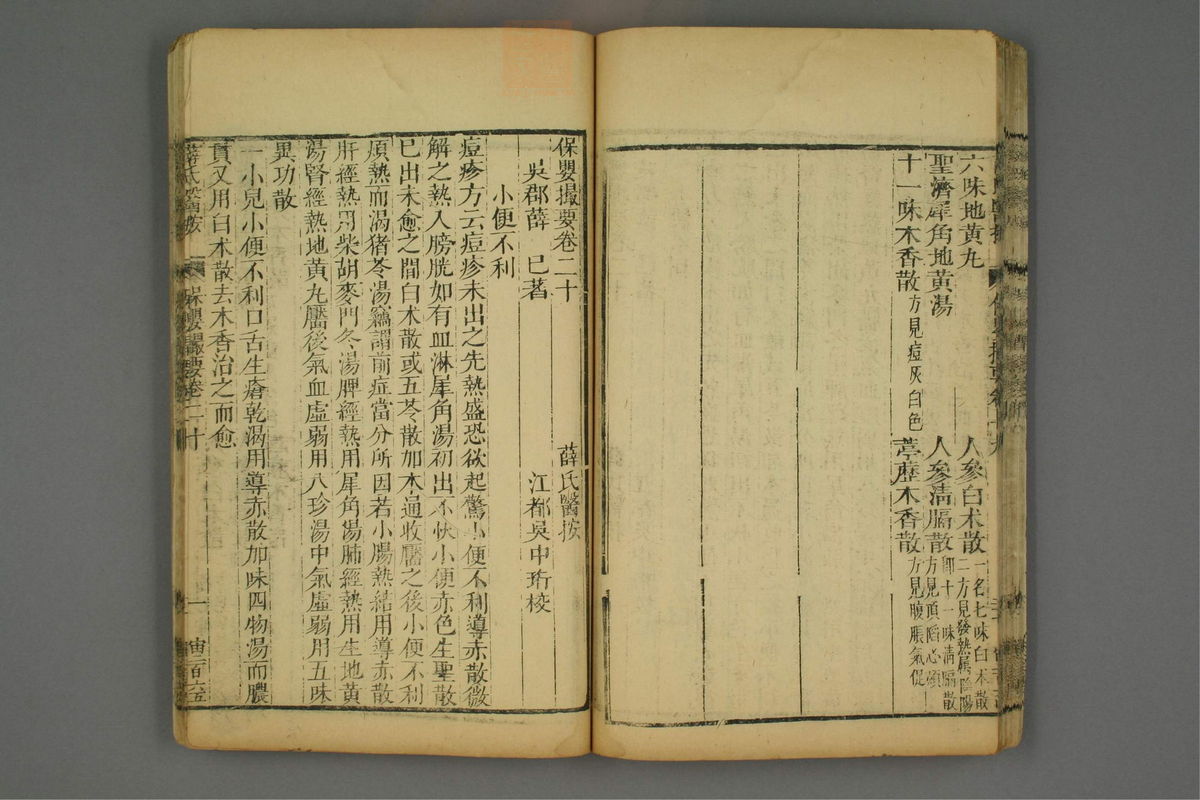 六味地黃丸
人參白朮散一名七味白朮散二方見發熱屬陰陽
聖濟犀角地黃湯
人參淸膈散卽十一味淸膈散方見頂陷心煩
十一味木香散方見痘灰白色
葶藶木香散方見腹脹氣促
保嬰撮要卷二十
薛氏醫按
吳郡薛 已著
江都吳中珩校
小便不利
痘疹方云痘疹未出之先熱盛恐欲起驚小便不利導赤散微
解之熱入膀胱如有血淋犀角湯初出不快小便赤色生聖散
已出未愈之間白朮散或五苓散加木通收靨之後小便不利
煩熱而渴猪苓湯竊謂前症當分所因若小腸熱結用導赤散
肝經熱用柴胡麥門冬湯脾經熱用犀角湯肺經熱用生地黃
湯腎經熱地黃丸靨後氣血虛弱用八珍湯中氣虛弱用五味
異功散
一小兒小便不利口舌生瘡乾渴用導赤散加味四物湯而膿
貫又用白朮散去木香治之而愈
薛氏醫按
保嬰撮要卷二十
一